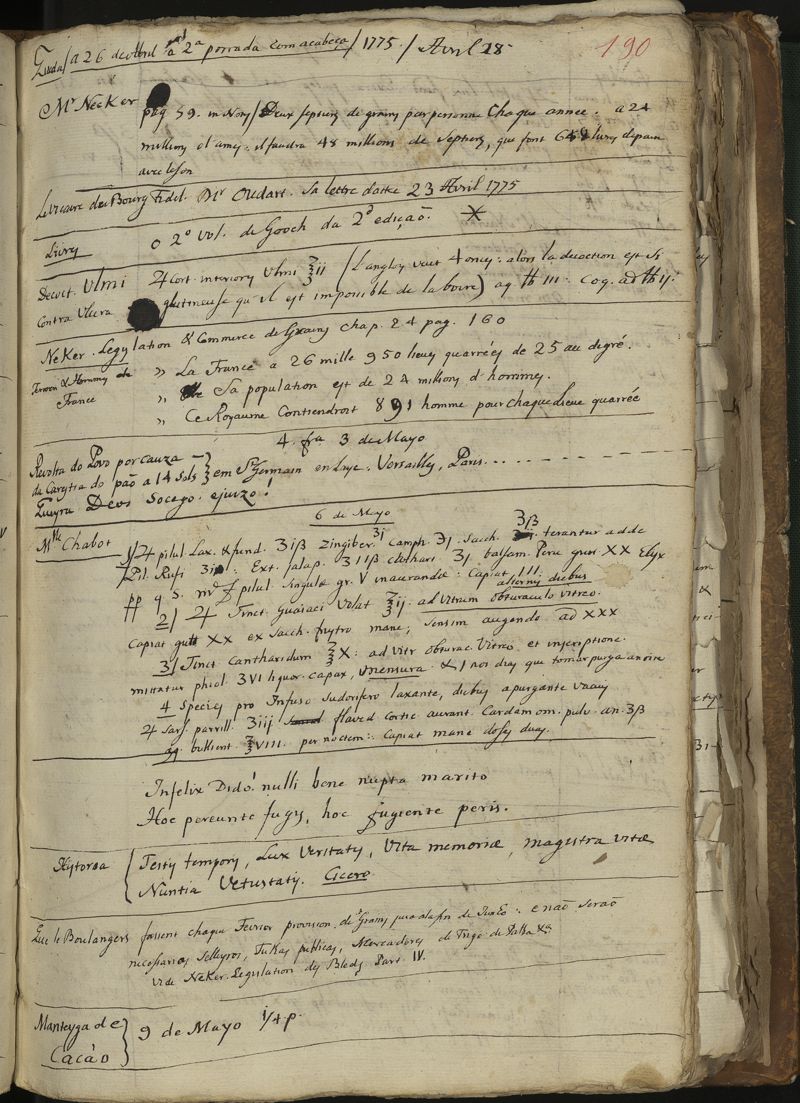 / a 26 de Abril a 2ª porrada com a cabeça / 1775 / Avril 28 190
Mr Necker
pag 59. in Not / Deux septiers de grains par personne Chaque année. a 24
millions d'ames. il faudra 48 millions de septiers, que font livres de pain
avec le son
Le Vicaire du Bourg Fidel. Mr Oudart. Sa lettre dattée 23 Avril 1775
Livres o 2º vol. de Gooch da 2ª edição. X
Decoct. Ulmi ♃ Cort. interiory Ulmi ℥ij (Langloy veut 4 onces: alors la decoction est si
Contra Ulcera glutineuse qu'il est impossible de la boire) aq ℔ III. coq. ad ℔ ij.
Neker. Legylation & Commerce de Grains chap. 24 pag. 160
Terrein & Hommy de France
" La France a 26 mille 950 lieues quarrées de 25 au degré.
" Sa population est de 24 millions d'hommes.
" Ce Royaume Contiendroit 891 homme pour chaque lieue quarrée
4. fra 3 de Mayo
Revolta do Povo por cauza
da Carestia do pão a 14 Sols } em St Germain en Laye, Versailles, Paris. . . .
Queyra Deos Socego. e juizo!
6 de Mayo
Mlle Chabot
1/ ♃ pilul. Lax. Ʒiβ Zingiber. Ʒj Camph. ℈j. Sacch. Ʒiβ terantur adde
Pil. Rufi Extr. Jalap. Ʒ j balsam. Peru gutt XX Elyx
pp q. s. m. f pilul. singulæ gr. V inaurandæ: Capiat III alternis diebus
2/ ♃ Tinct. Guaiaci Volat ℥ij. ad Vitrum obturaculo vitreo.
Capiat gutt XX ex Sacch. mane, sensim augendo ad XXX
3/ Tinct Cantharidum ℥X: ad Vitr obturac. Vitreo et inscriptione.
mittatur phiol. ʒVI liquor. capax, mensura & 1 nos dias que tomar purga anoite
4 Species pro Infuso sudorifero laxante, diebus a purgante vacuis
♃ Sars. parrill. Ʒiij flaved cortic aurant. Cardamom. pulv. an. Ʒβ
aq. bullient. ℥VIII. per noctem: Capiat mane doses duas.
Infelix Dido! nulli bene nupta marito
Hoc pereunte fugis, hoc fugiente peris.
Hystoria { Testy tempory, Lux Veritaty, Vita memoriæ, magistra vitæ
Nuntia Vetustaty. Cicero.
Que le Boulangers fassent chaque Fevrier provision de Grains jusq alafin de Juin: e não serão
necessarios Selleyros, Tulhas publicas, Mercadores de Trigo de
Vide Neker. Legislation des Bleds Part IV.
Manteyga de
Cacáo } 9 de Mayo 1/4 p.